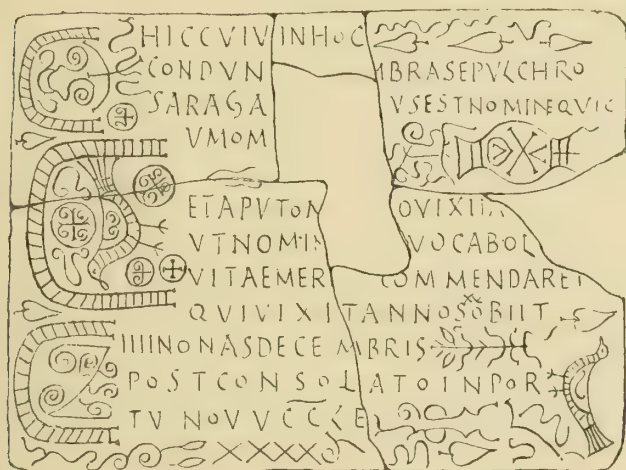 HIC CVIV IN HOC
CONDVN MBRA SEPVLCHRO
SARAGA VS EST NOMINE QVIC
VMOM
ET APVT OM O VIXI
VT NOMIN VOCABOL
VITAE MER COMMENDARET
QVI VIXIT ANNOS XX OBIIT
IIII NONAS DECEMBRIS
POST CONSOLATO INPOR
TVNO V V C C C L E